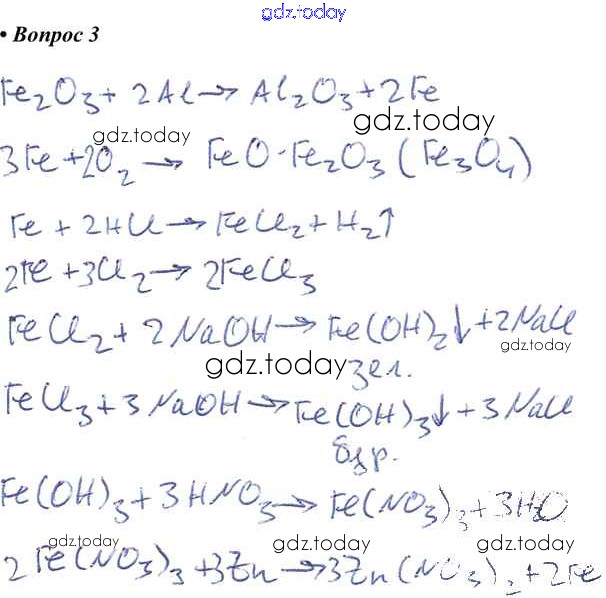 gdz.today
• Вопрос 3
Fe₂O₃ + 2Al → Al₂O₃ + 2Fe
gdz.today gdz.today
3Fe + 2O₂ → FeO·Fe₂O₃ (Fe₃O₄)
Fe + 2HCl → FeCl₂ + H₂↑
2Fe + 3Cl₂ → 2FeCl₃
FeCl₂ + 2NaOH → Fe(OH)₂↓ + 2NaCl
gdz.today
gdz.today зел.
FeCl₃ + 3NaOH → Fe(OH)₃↓ + 3NaCl
бур.
Fe(OH)₃ + 3HNO₃ → Fe(NO₃)₃ + 3H₂O
gdz.today gdz.today gdz.today
2Fe(NO₃)₃ + 3Zn → 3Zn(NO₃)₂ + 2Fe